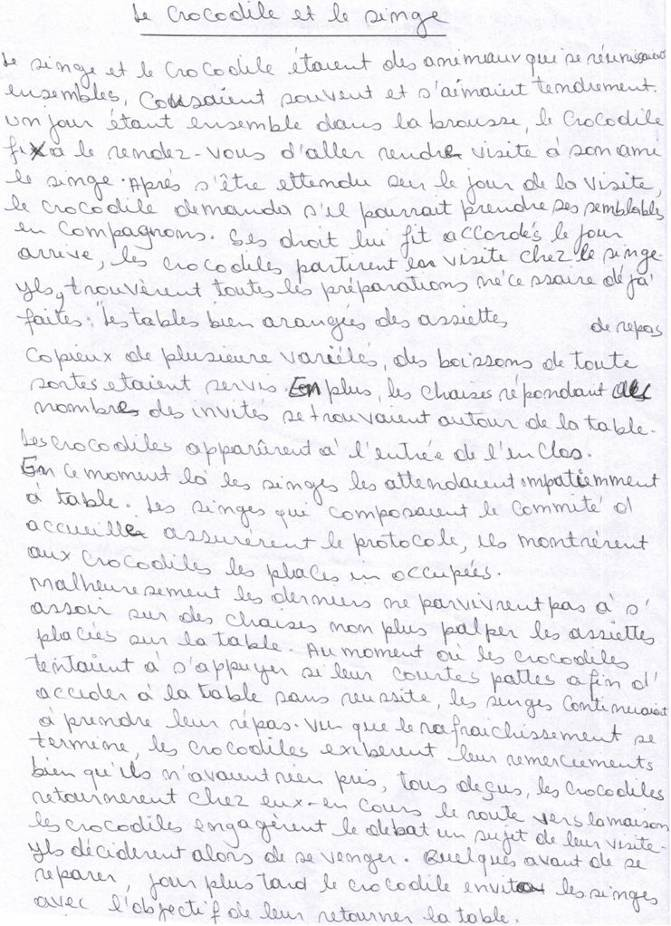 Le Crocodile et le singe
Le singe et le Crocodile étaient des animaux qui se réunissaient
ensembles, Cousaient souvent et s'aimaint tendrement.
un jour étant ensemble dans la brousse, le Crocodile
fixa le rendez-vous d'aller rendre visite à son ami
le singe. Après s'être ettendu sur le jour de la visite,
le crocodile demanda s'il pourrait prendre ses semblable
en Compagnons. Ses droit lui fit accordés le jour
arrive, les crocodiles partirent en visite chez le singe.
Yls, trouvèrent toutes les préparations nécessaire déjà
faites: les tables bien arangées des assiettes de repas
Copieux de plusieure variélés, des boissons de toute
sortes etaient servis. En plus, les chaises répondant au
nombres des invités se trouvaient autour de la table.
Les crocodiles apparûrent à l'entrée de l'enclos.
En ce moment là les singes les attendaient impatiemment
à table. Les singes qui composaient le Commité d'
accueille assurèrent le protocole, ils montrèrent
aux crocodiles les places in occupées.
Malheuresement les derniers ne parvivrent pas à s'
assoir sur des chaises non plus palper les assiettes
placiés sur la table. Au moment où les crocodiles
tentaient à s'appuyer si leur courtes pattes afin d'
acceder à la table sans reussite, les singes continuaient
à prendre leur répas. Vu que le rafraichissement se
termine, les crocodiles exiberent leur remerciements
bien qu'ils n'avaient rien pris, tous deçus, les Crocodiles
retournerent chez eux-en cours le route vers la maison
les crocodiles engagèrent le debat un sujet de leur visite-
Yls déciderent alors de se venger. Quelques avant de se
reparer, jour plus tard le crocodile envita les singes
avec l'objectif de leur retourner la table.